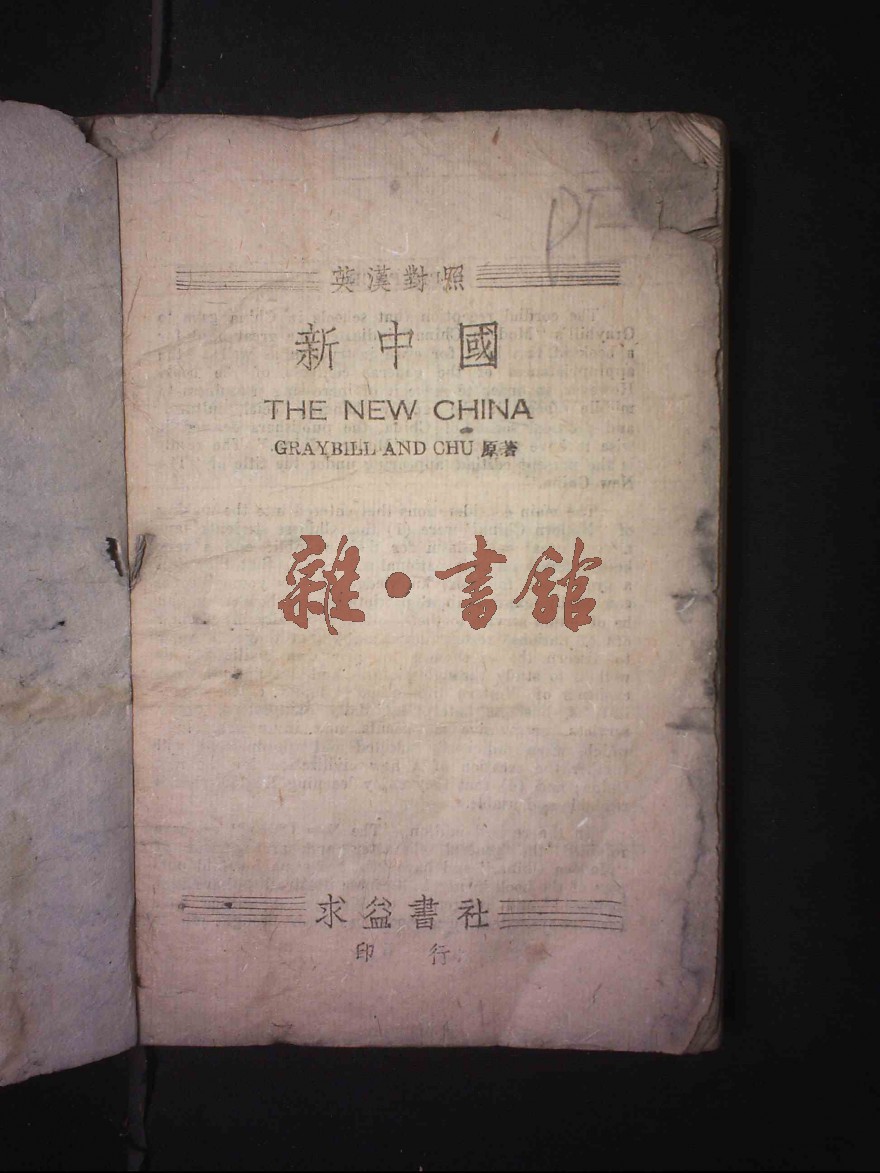 英漢對照
新中國
THE NEW CHINA
GRAYBILL AND CHU 原著
雜·書館
求益書社
印行